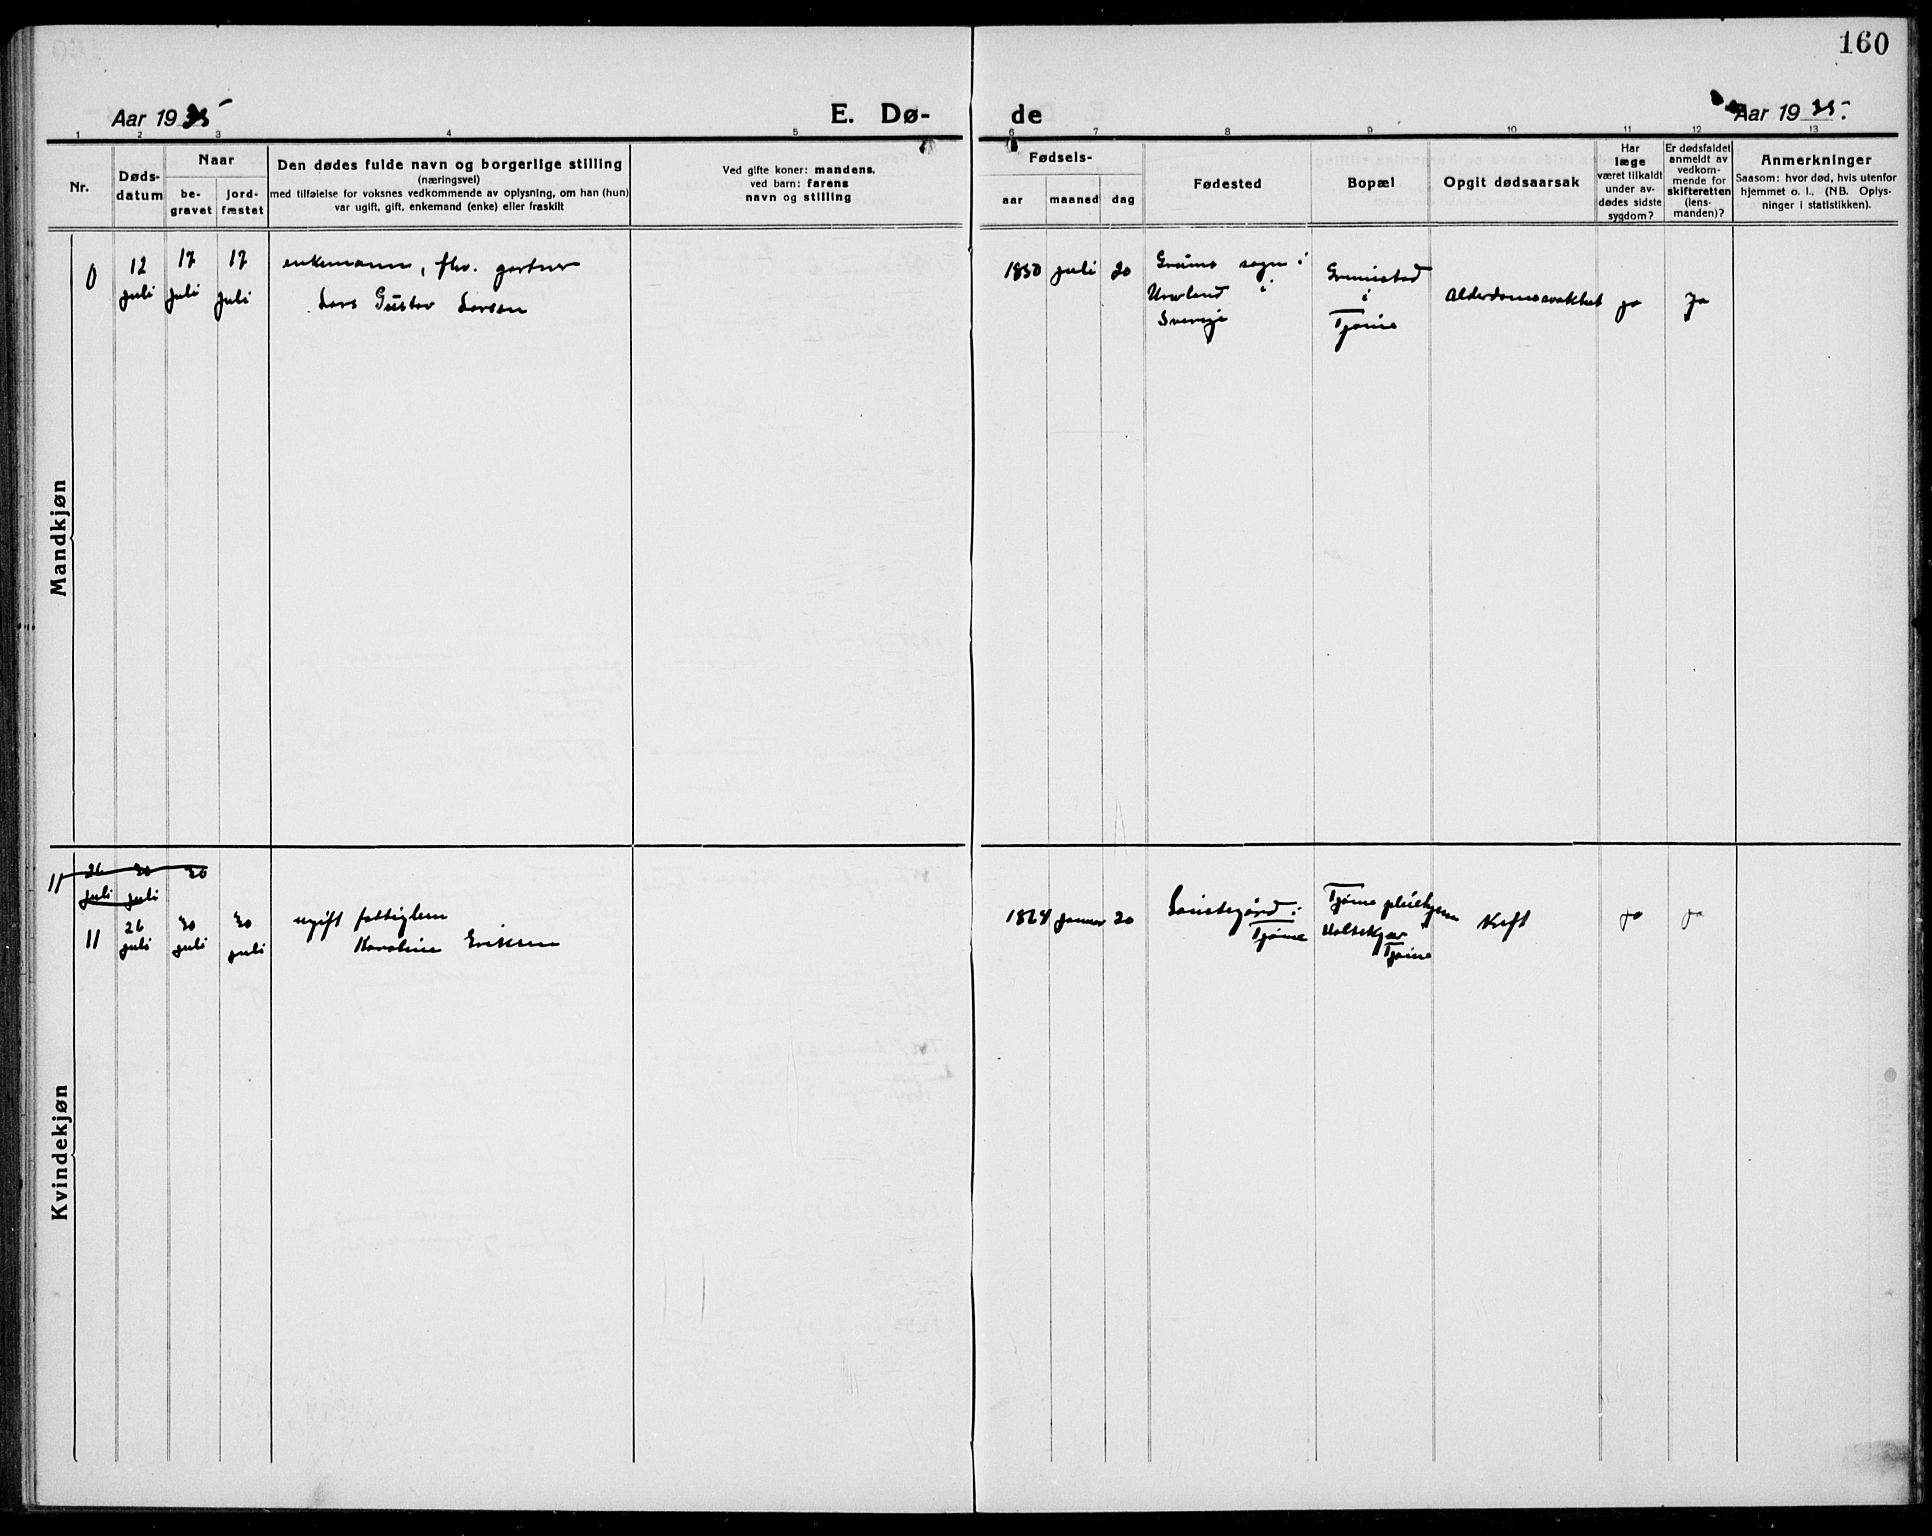 160
Aar 1935
E. Dø-
de
Aar 1935.
1 2 3 4 5 6 7 8 9 10 11 12 13
Nr.
Døds-
datum
Naar
be-
gravet
jord-
fæstet
Den dødes fulde navn og borgerlige stilling
(næringsvei)
med tilføielse for voksnes vedkommende av oplysning, om han (hun)
var ugift, gift, enkemand (enke) eller fraskilt
Ved gifte koner: mandens.
ved barn: farens
navn og stilling
Fødsels-
aar maaned dag
Fødested
Bopæl
Opgit dødsaarsak
Har
læge
været tilkaldt
under av-
dødes sidste
sygdom?
Er dødsfaldet
anmeldt av
vedkom-
mende for
skifteretten
(lens-
manden)?
Anmerkninger
Saasom: hvor død, hvis utenfor
hjemmet o. l., (NB. Oplys-
ninger i statistikken).
Mandkjøn
12 juli
17 juli
17 juli
enkemann, fhv. gartner
Lars Gustav Larsen
1850 juli 20
Grums sogn i
Sverige
Grimestad
i
Tjøme
Alderdomssvakhet
ja
ja
Kvindekjøn
11
26 juli
30 juli
30
11
26 juli
30 juli
30 juli
ugift fattiglem
Karoline Eriksen
januar 20
i
Tjøme
Tjøme pleiehjem
Holtekjær
Tjøme
Kreft
ja
ja